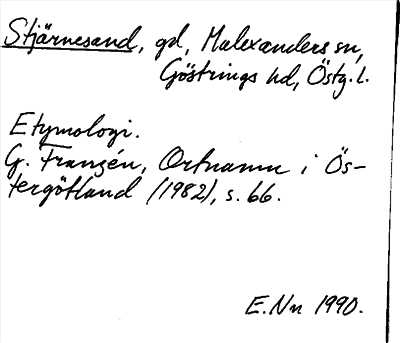 Stjärnesand, gd, Malexanders sn,
Göstrings hd, Östg.l.
Etymologi.
G. Franzén, Ortnamn i Ös-
tergötland (1982), s. 66.
E.Nn 1990.